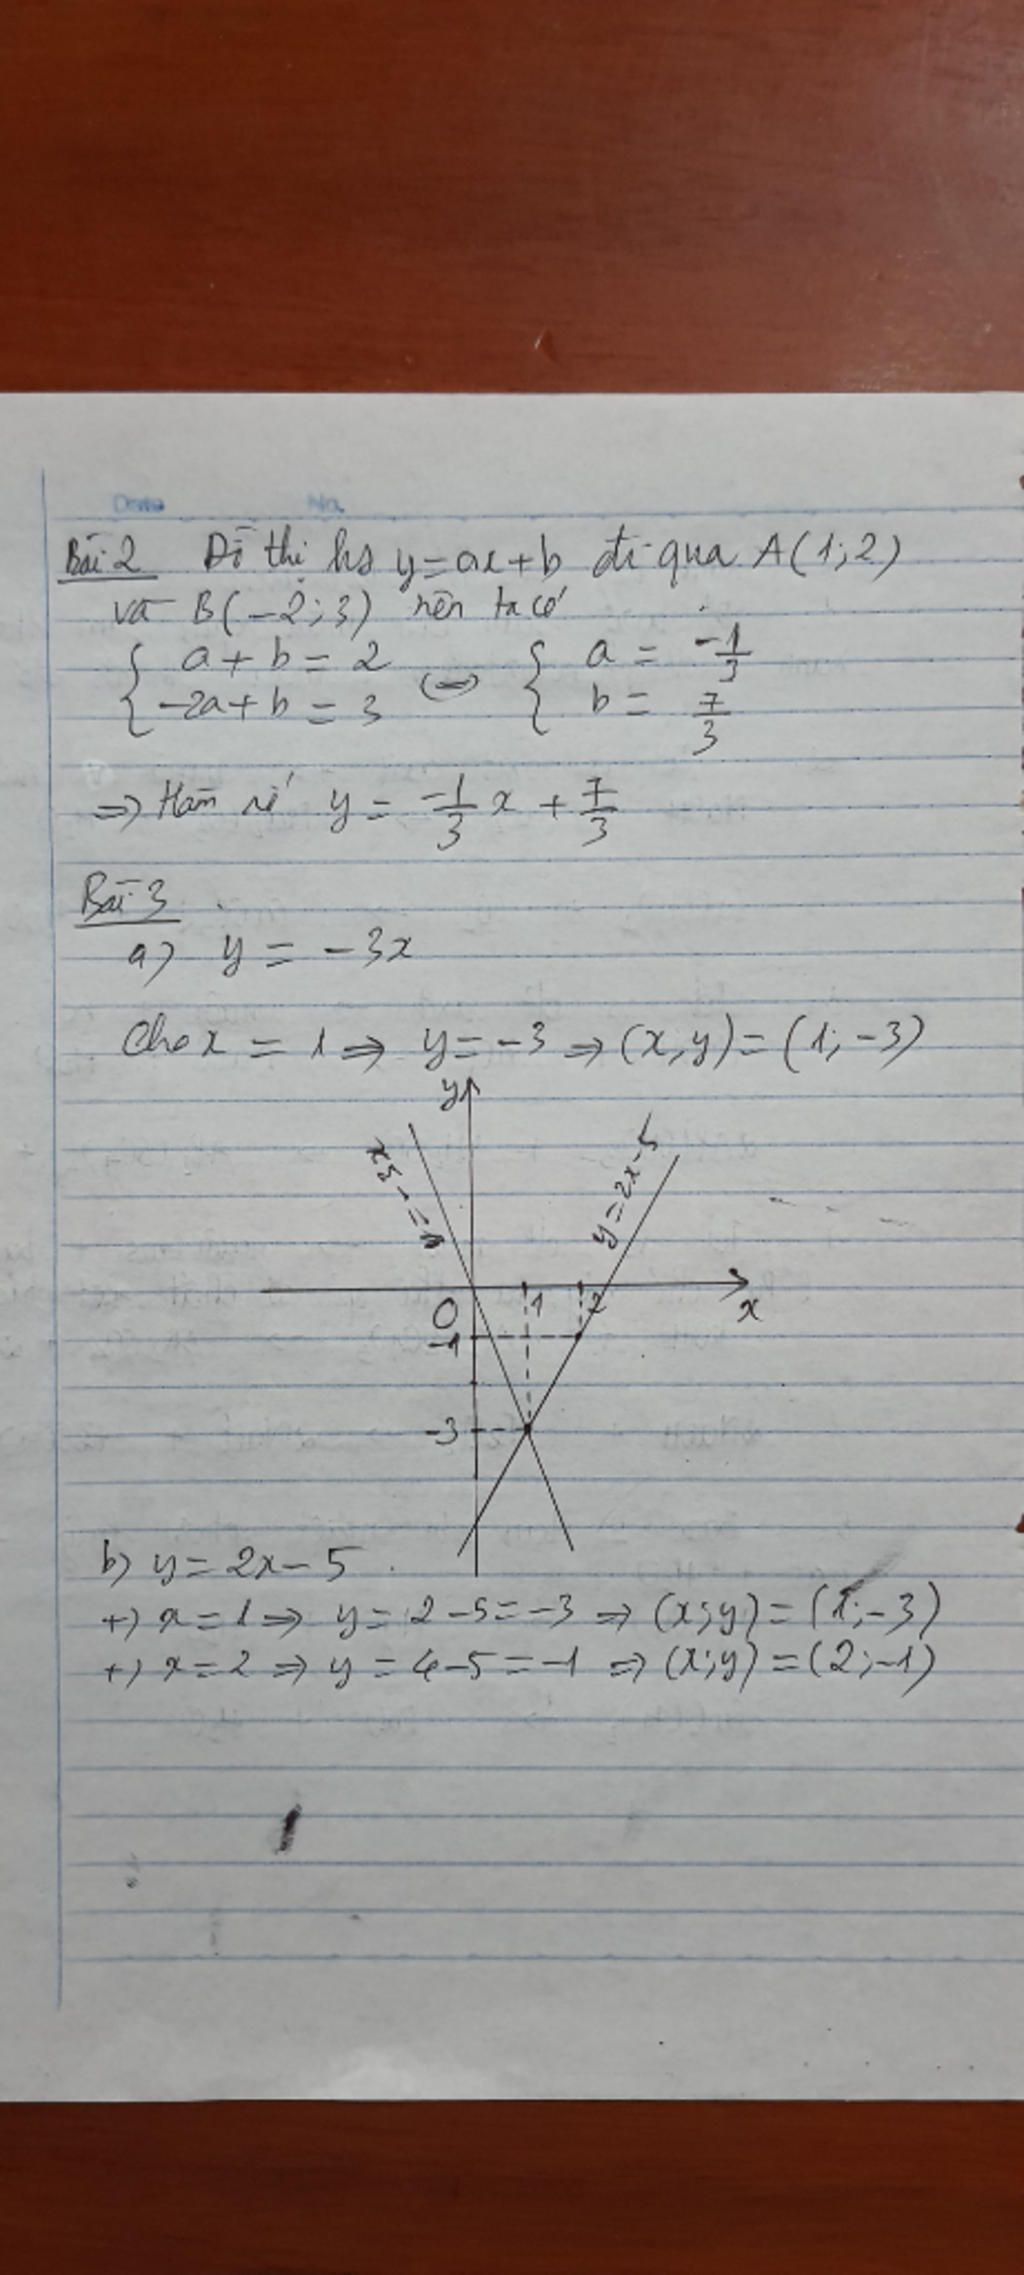 Date No.
Bài 2 Đồ thị hs y=ax+b đi qua A(1;2)
và B(-2;3) nên ta có
{ a + b = 2 (=) { a = -1/3
{ -2a+b = 3 { b = 7/3
=> Hàm số y = -1/3 x + 7/3
Bài 3
a) y = -3x
Cho x = 1 => y = -3 => (x,y) = (1;-3)
y
y=-3x
y=2x-5
O 1 2 x
-1
-3
b) y = 2x - 5
+) x = 1 => y = 2-5 = -3 => (x;y) = (1;-3)
+) x = 2 => y = 4-5 = -1 => (x;y) = (2;-1)